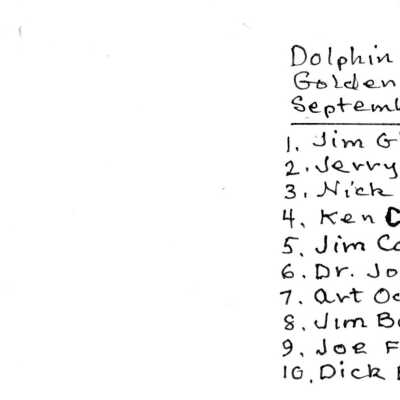 Dolphin
Golden
Septemb
1. Jim G
2. Jerry
3. Nick
4. Ken C
5. Jim Co
6. Dr. Jo
7. Art Oc
8. Jim Bo
9. Joe F
10. Dick